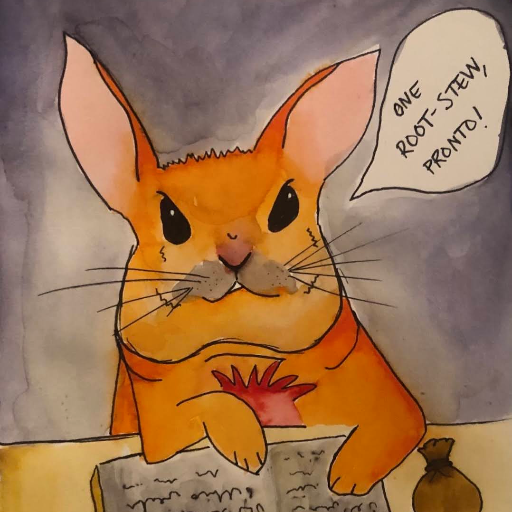 ONE
ROOT-STEW,
PRONTO!